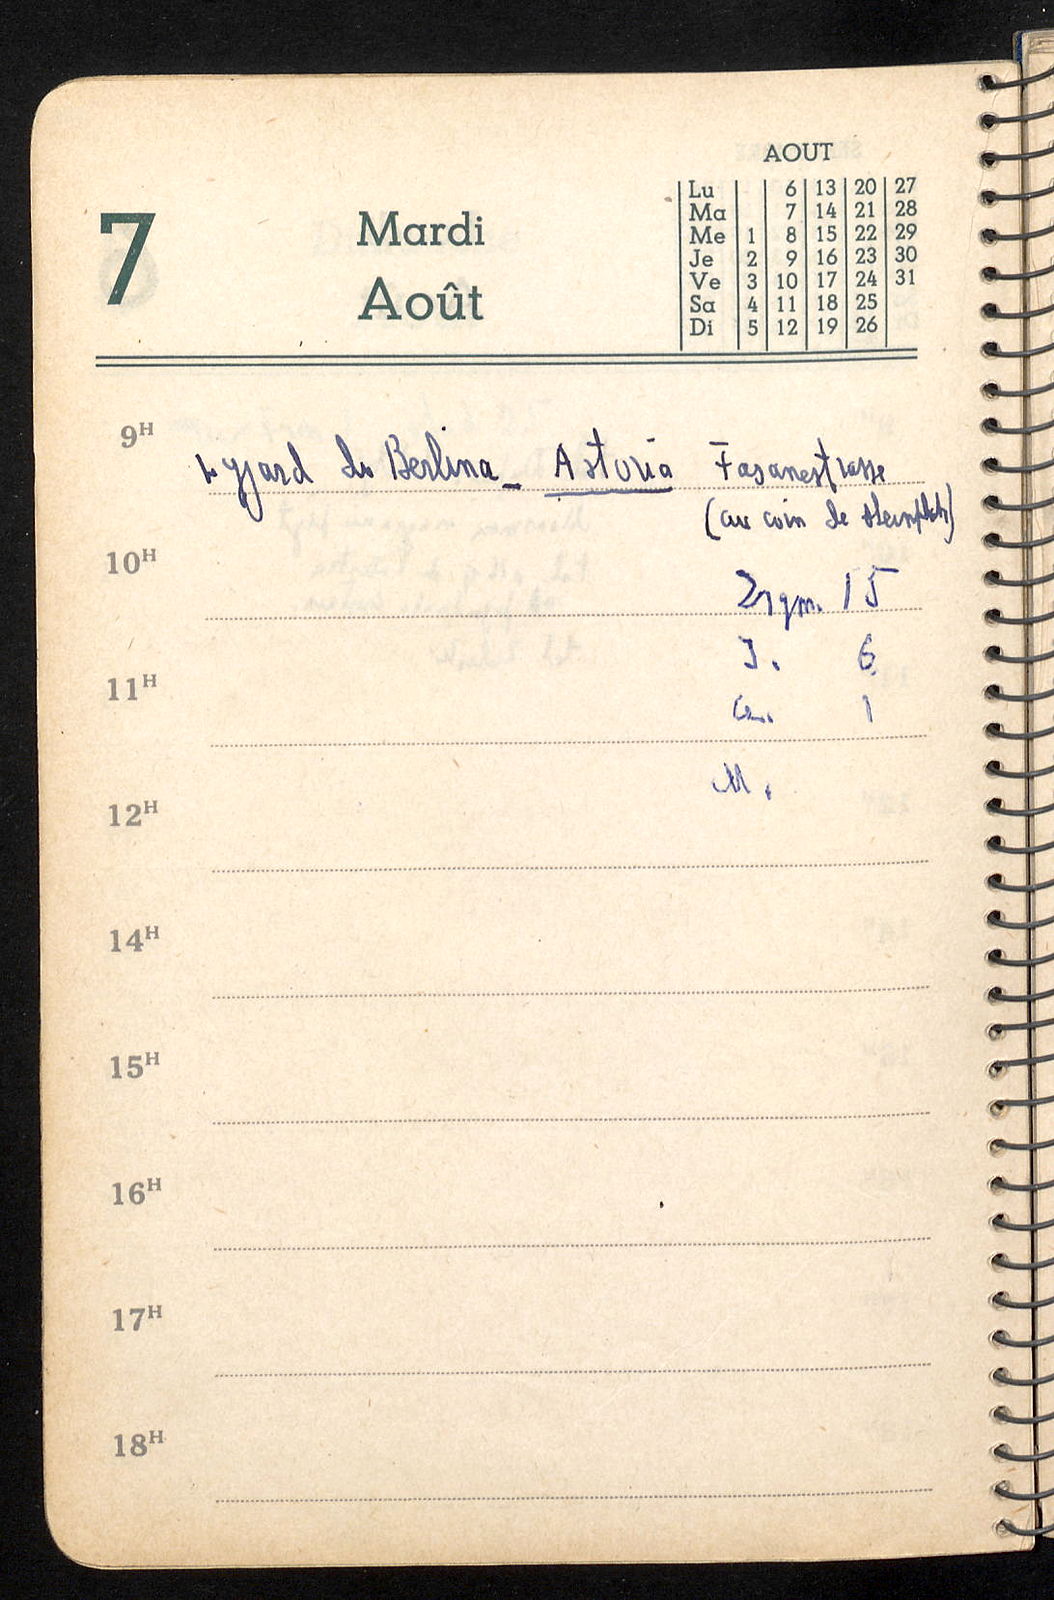 AOUT
Lu 6 13 20 27
Ma 7 14 21 28
Me 1 8 15 22 29
Je 2 9 16 23 30
Ve 3 10 17 24 31
Sa 4 11 18 25
Di 5 12 19 26
7
Mardi
Août
9H
Berlina - Asturia Fasanestrasse
(au coin de
10H
15
J. 6
11H
1
M.
12H
14H
15H
16H
17H
18H